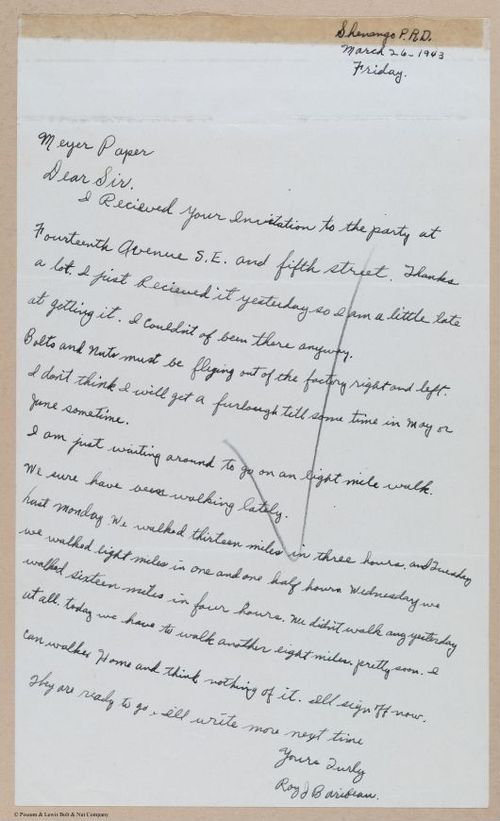 Shenango P.R.D.
March 26-1943
Friday.
Meyer Paper
Dear Sir.
I Recieved your Invitation to the party at
Fourteenth Avenue S.E. and fifth street. Thanks
a lot. I just Recieved it yesterday so I am a little late
at getting it. I couldn't of been there anyway.
Bolts and Nuts must be flying out of the factory right and left.
I don't think I will get a furlough till some time in May or
June sometime.
I am just waiting around to go on an eight mile walk.
We sure have been walking lately.
Last Monday. We walked thirteen miles in three hours, and Tuesday
we walked eight miles in one and one half hours Wednesday we
walked sixteen miles in four hours. We didn't walk any yesterday
at all. today we have to walk another eight miles, pretty soon. I
can walk Home and think nothing of it. I'll sign off now.
They are ready to go. I'll write more next time
Yours Turly
Roy J Baribeau.
© Possum & Lewis Bolt & Nut Company